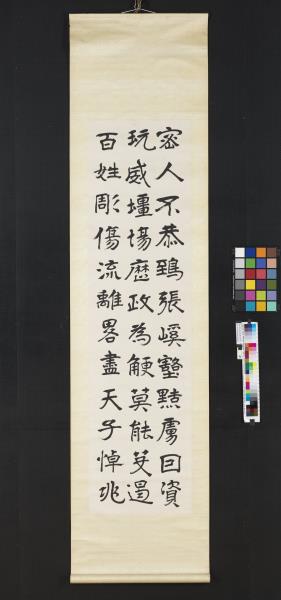 密人不恭鵄張嵠壑黠虜回資
玩威壃場歷政為鯁莫能芟遏
百姓彫傷流離畧盡天子悼兆